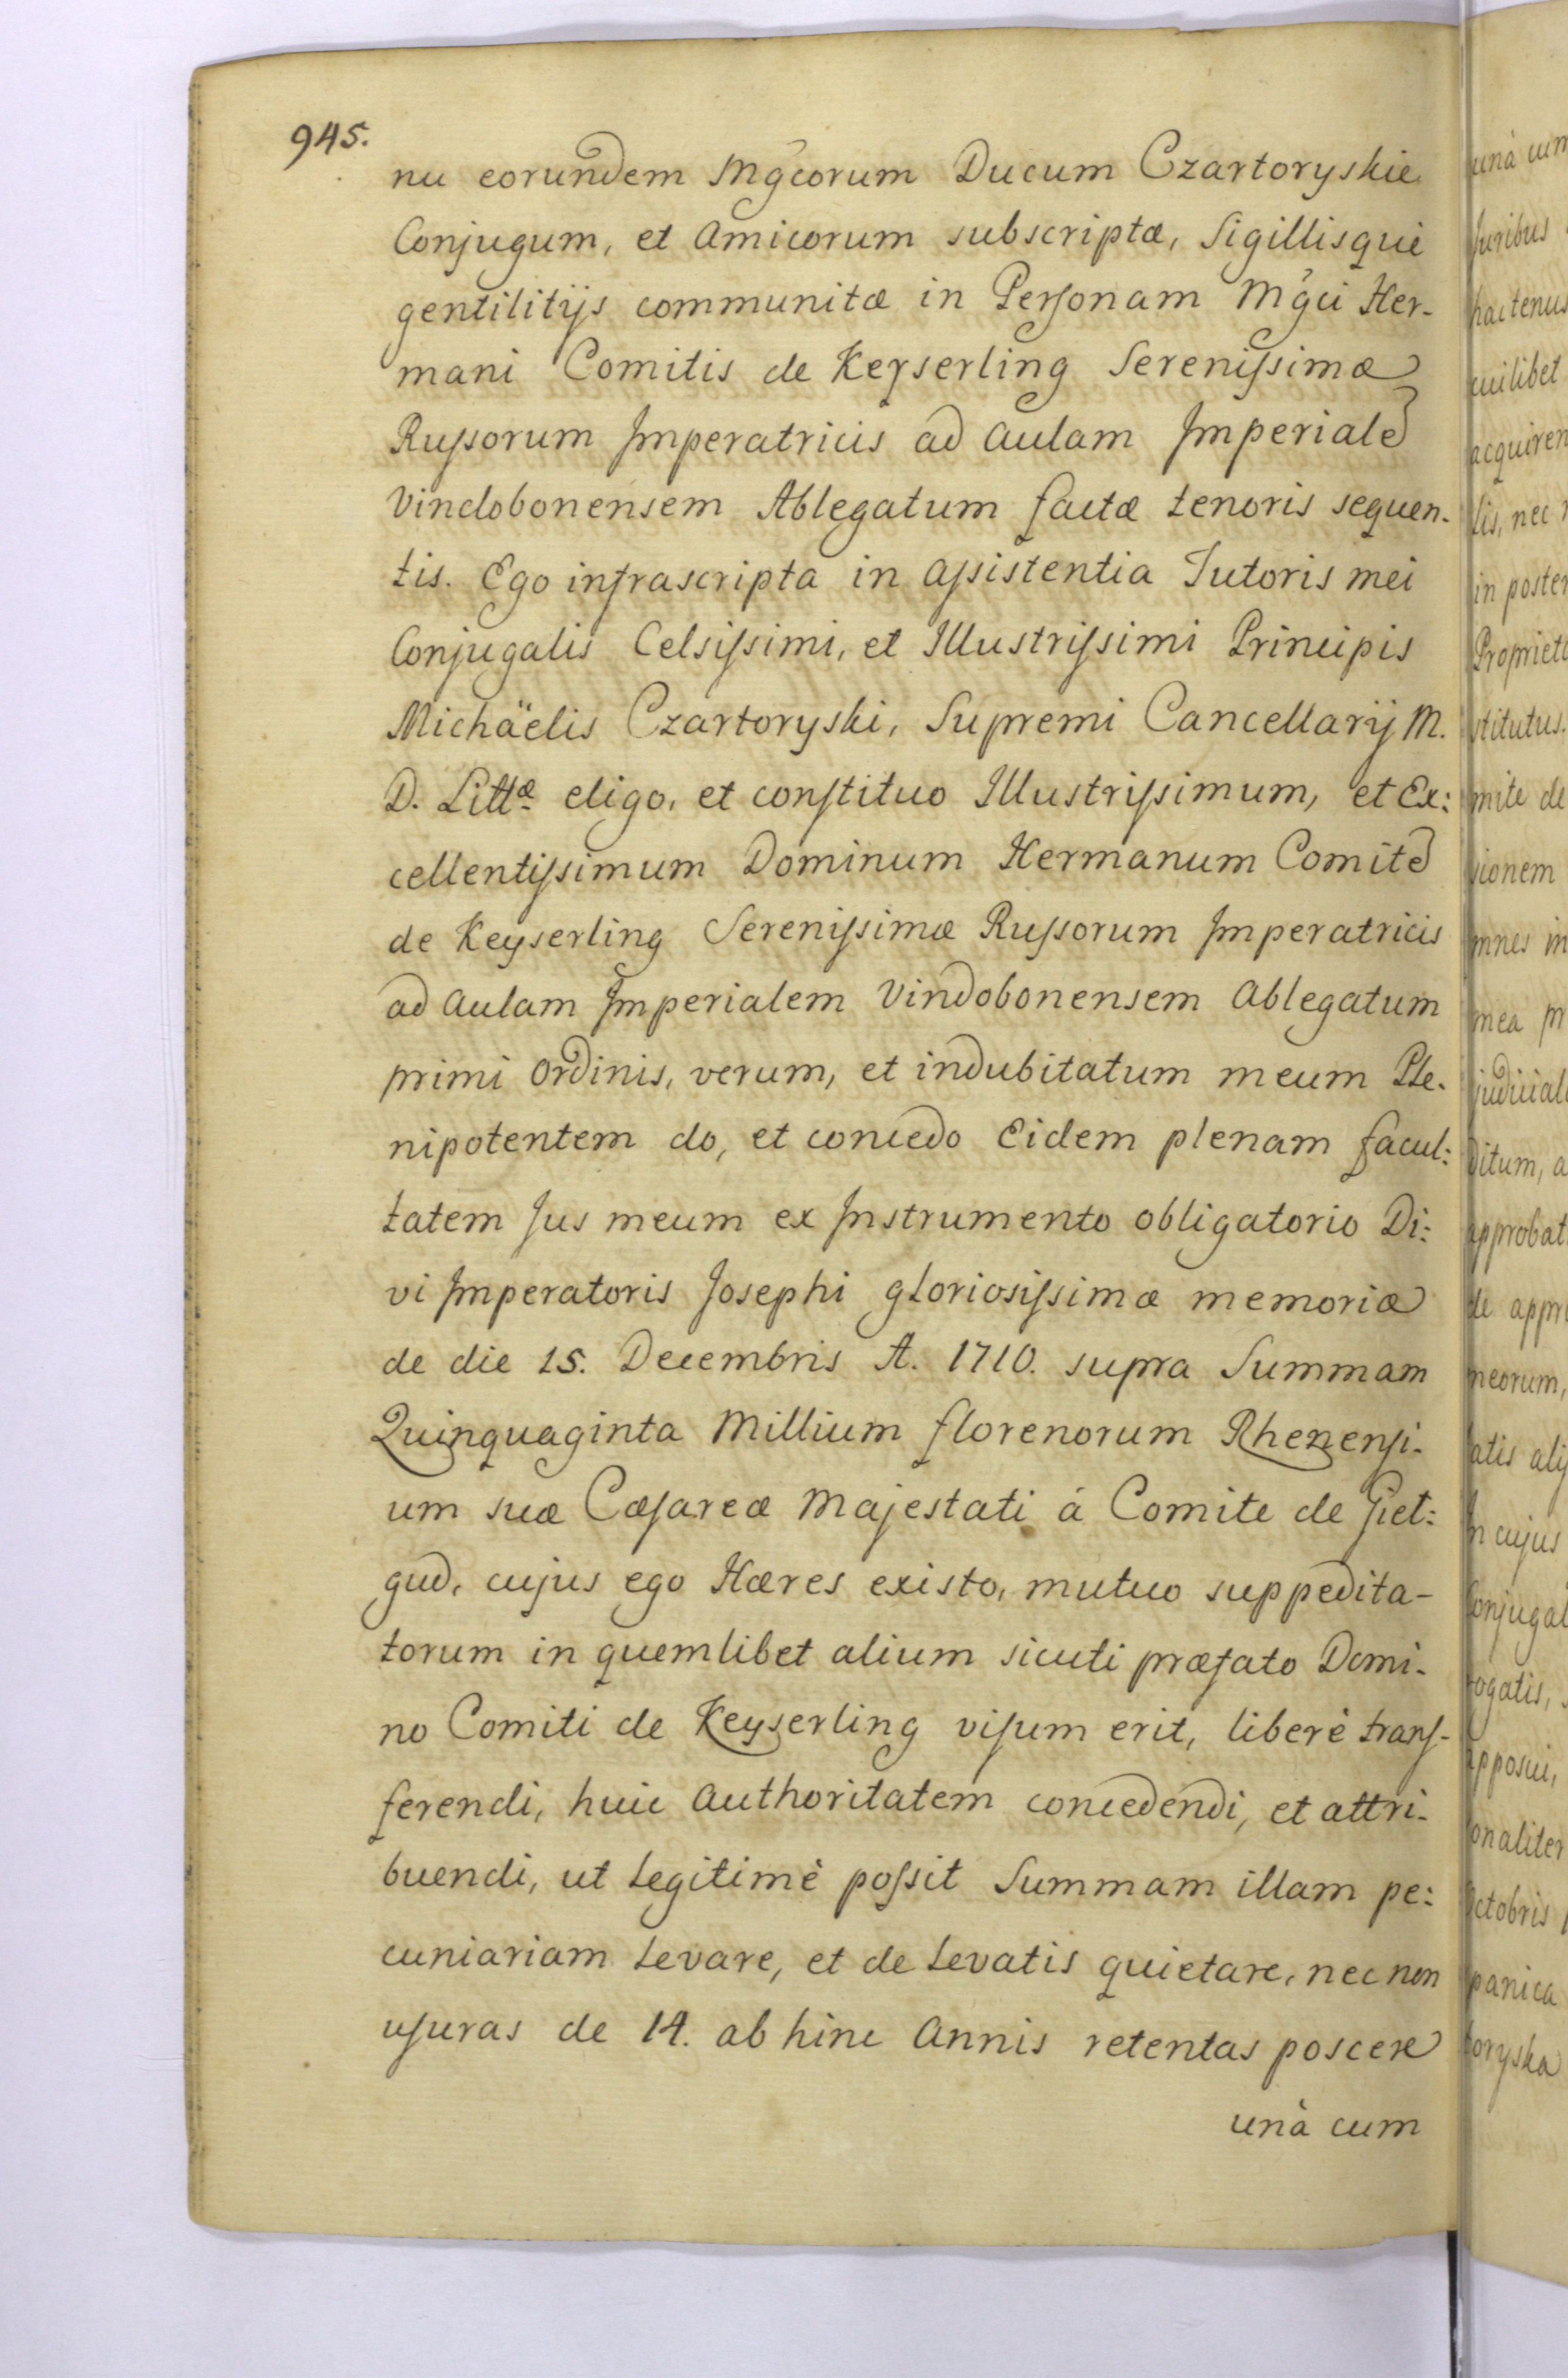 945.
nu eorundem Mgcorum Ducum Czartoryskie
Conjugum, et Amicorum subscriptæ, Sigillisque
gentilitijs communitæ in Personam Mgci Her-
mani Comitis de Keyserling Serenissimæ
Russorum Imperatricis ad Aulam Imperiale
Vindobonensem Ablegatum factæ tenoris sequen-
tis. Ego infrascripta in assistentia Tutoris mei
Conjugalis Celsissimi, et Illustrissimi Principis
Michäelis Czartoryski, Supremi Cancellarij M.
D. Littæ eligo, et constituo Illustrissimum, et Ex:
cellentissimum Dominum Hermanum Comite
de Keyserling Serenissimæ Russorum Imperatricis
ad Aulam Imperialem Vindobonensem Ablegatum
primi Ordinis, verum, et indubitatum meum Ple-
nipotentem do, et concedo Eidem plenam facul:
tatem Jus meum ex Instrumento obligatorio Di:
vi Imperatoris Josephi gloriosissimæ memoriæ
de die 15. Decembris A. 1710. supra Summam
Quinquaginta Millium florenorum Rhenensi-
um suæ Cæsareæ Majestati á Comite de Giet:
gud, cujus ego Hæres existo, mutuo suppedita-
torum in quemlibet alium sicuti præfato Domi-
no Comiti de Keyserling visum erit, liberè trans-
ferendi, huic Authoritatem concedendi, et attri-
buendi, ut legitimè possit Summam illam pe:
cuniariam levare, et de levatis quietare, nec non
usuras de 14. ab hinc Annis retentas poscere
unà cum